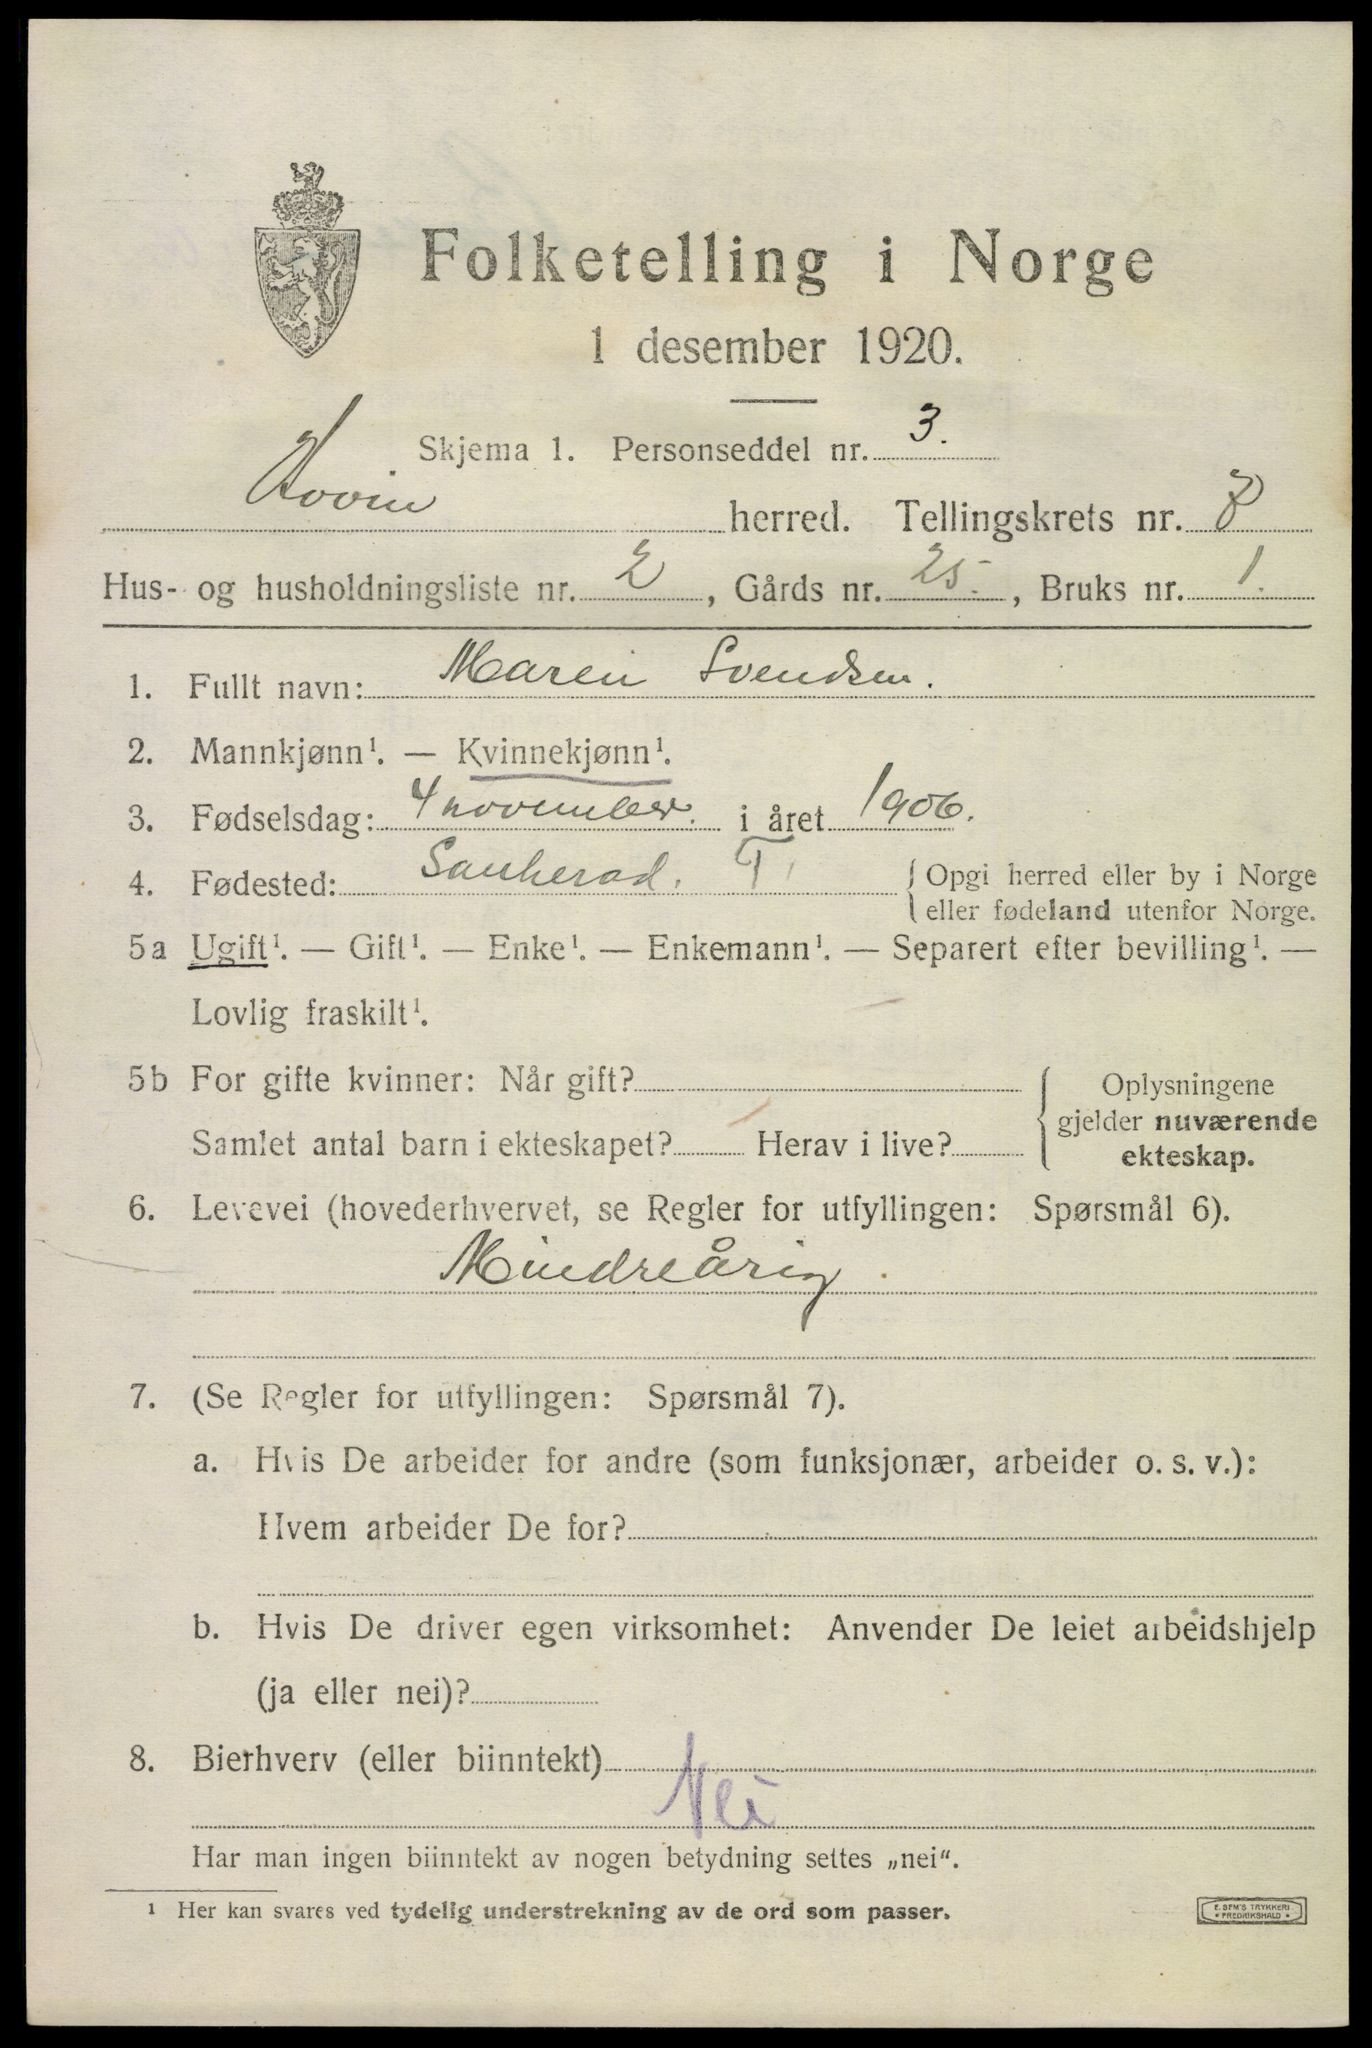 Folketelling i Norge
1 desember 1920.
Skjema 1. Personseddel nr. 3.
Hovin herred. Tellingskrets nr. 7
Hus- og husholdningsliste nr. 2, Gårds nr. 25., Bruks nr. 1.
1. Fullt navn: Maren Svendsen.
2. Mannkjønn¹. — Kvinnekjønn¹.
3. Fødselsdag: 4 november. i året 1906.
4. Fødested: Sauherad. T. { Opgi herred eller by i Norge
eller fødeland utenfor Norge.
5a Ugift¹. — Gift¹. — Enke¹. — Enkemann¹. — Separert efter bevilling¹. —
Lovlig fraskilt¹.
5b For gifte kvinner: Når gift?
Samlet antal barn i ekteskapet? Herav i live?
{ Oplysningene
gjelder nuværende
ekteskap.
6. Levevei (hovederhvervet, se Regler for utfyllingen: Spørsmål 6).
Mindreårig.
7. (Se Regler for utfyllingen: Spørsmål 7).
a. Hvis De arbeider for andre (som funksjonær, arbeider o. s. v.):
Hvem arbeider De for?
b. Hvis De driver egen virksomhet: Anvender De leiet arbeidshjelp
(ja eller nei)?
8. Bierhverv (eller biinntekt)
Nei
Har man ingen biinntekt av nogen betydning settes „nei“.
¹ Her kan svares ved tydelig understrekning av de ord som passer.
E. SEM'S TRYKKERI
* FREDRIKSHALD *